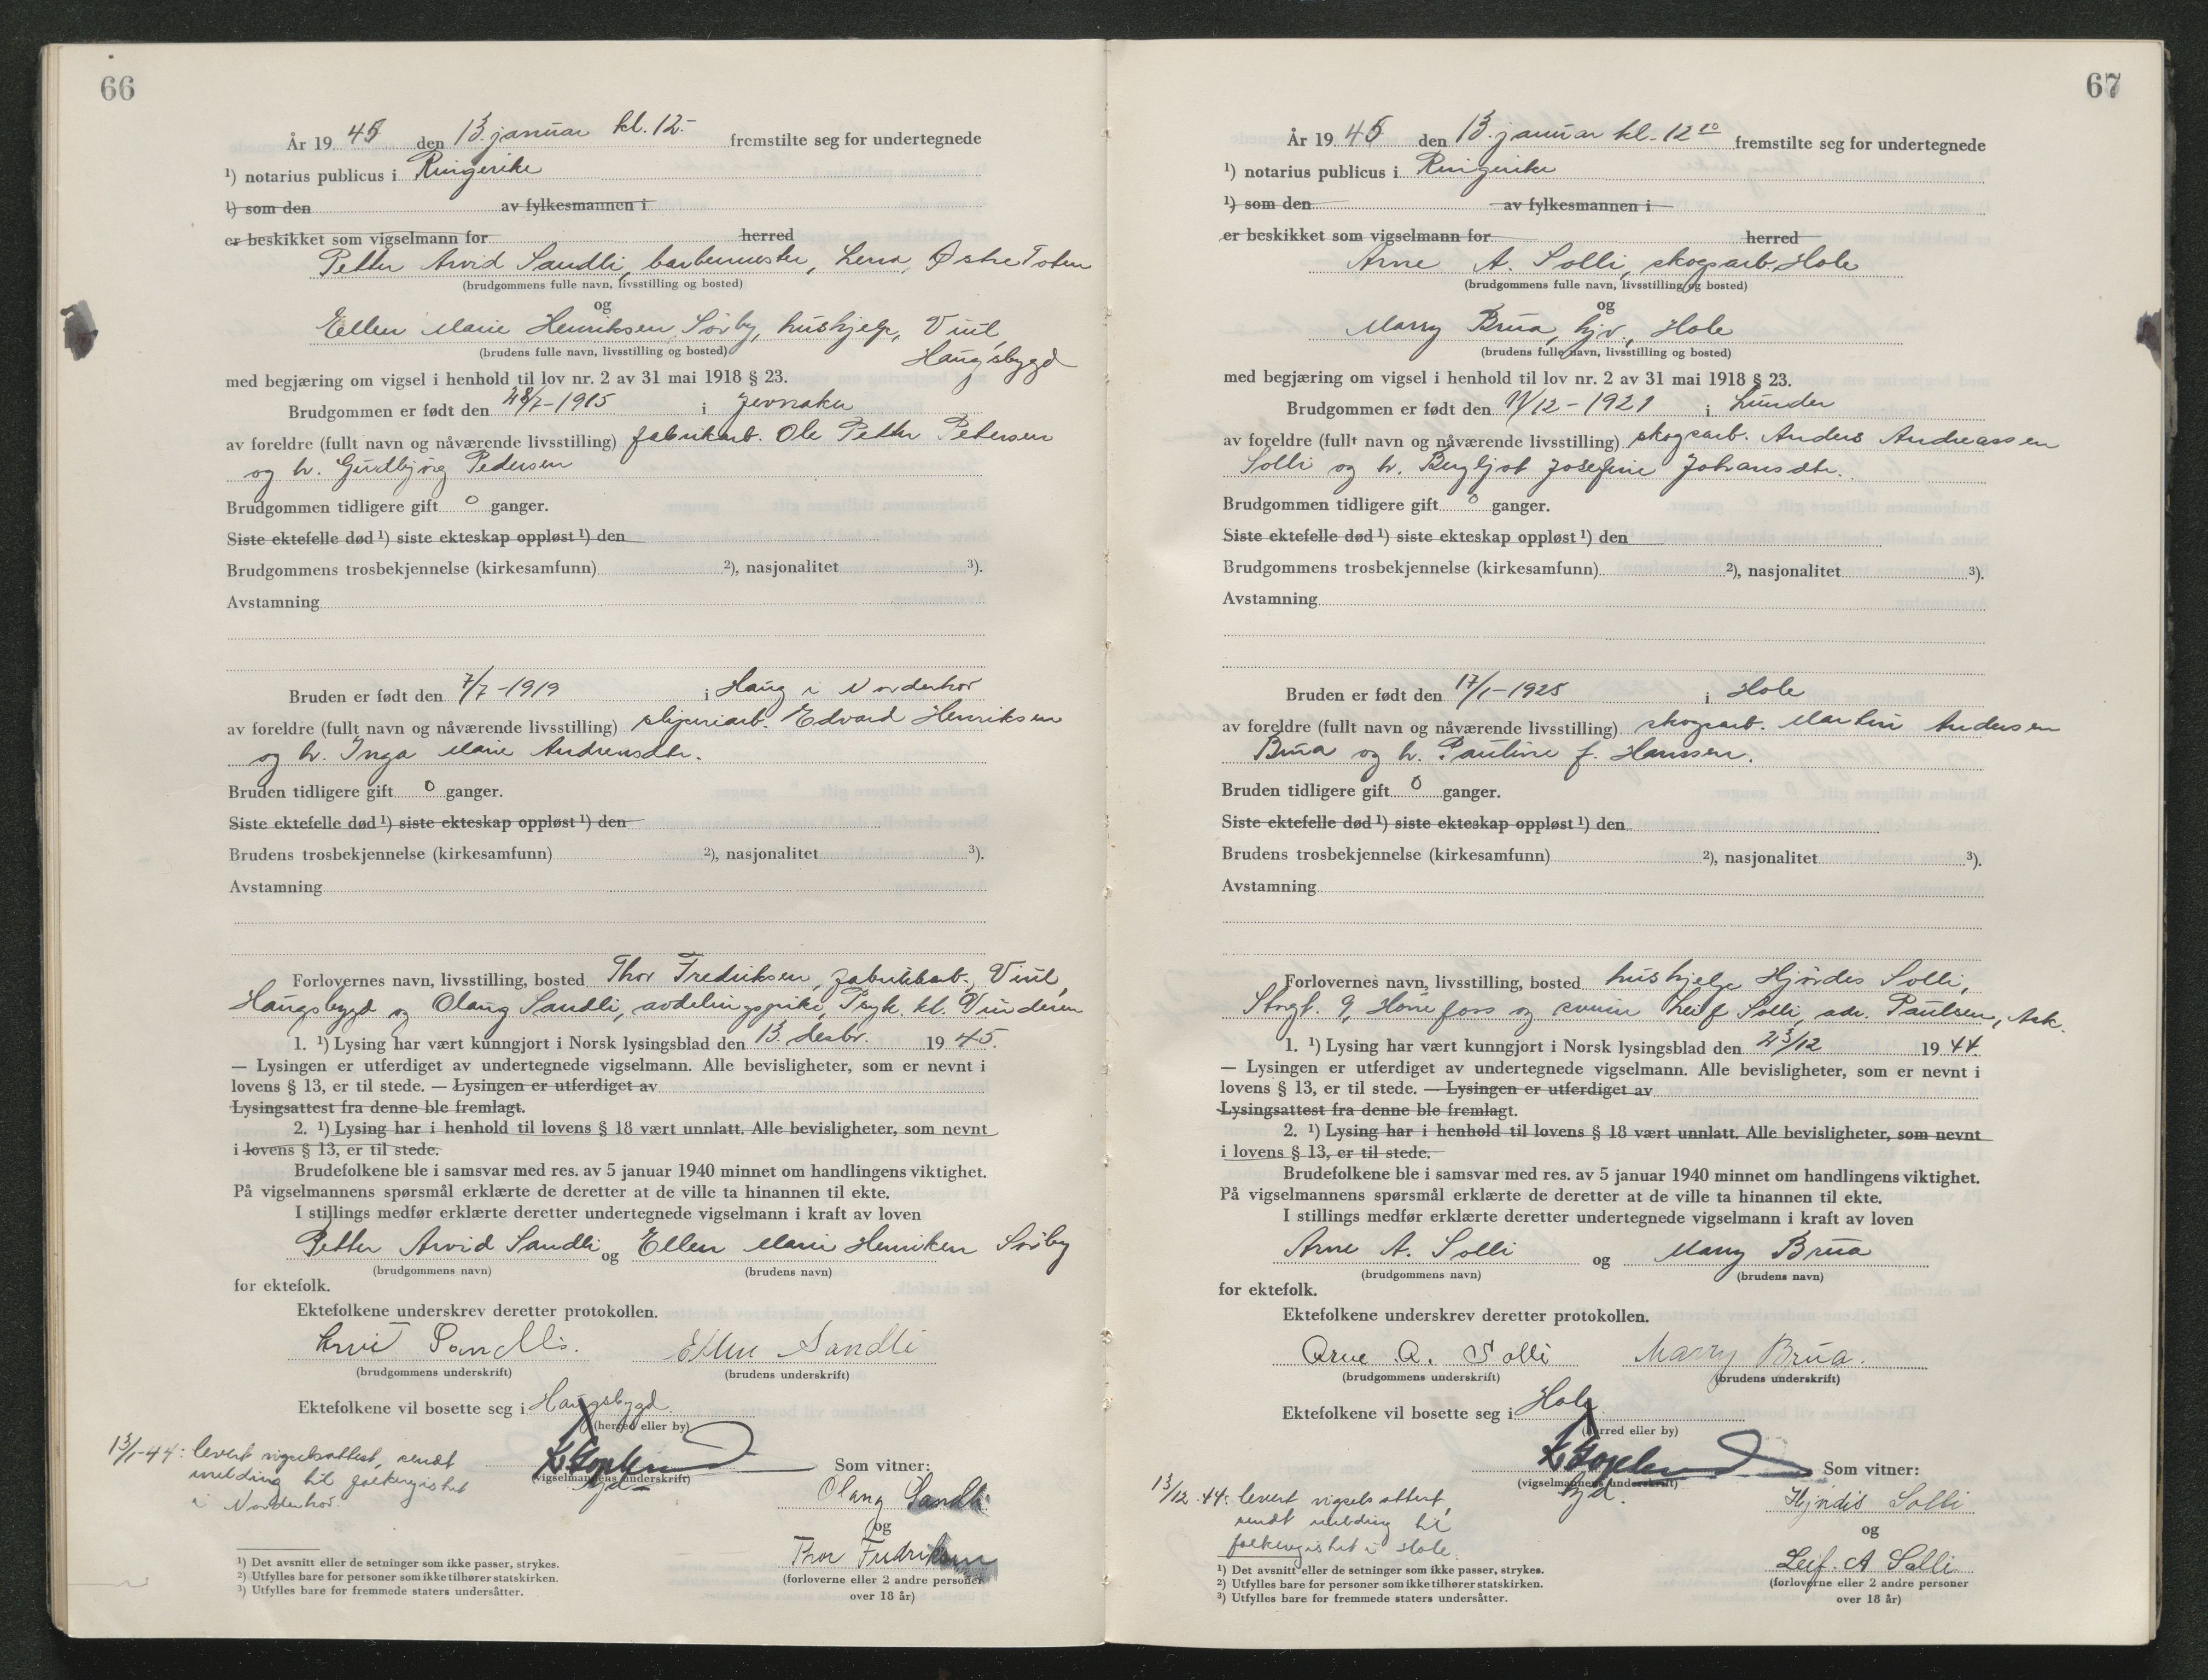 66
År 19 45 den 13. januar kl. 12.- fremstilte seg for undertegnede
¹) notarius publicus i Ringerike
¹) som den av fylkesmannen i
er beskikket som vigselmann for herred
Petter Arvid Sandli, barbermester, Lena, Østre Toten
(brudgommens fulle navn, livsstilling og bosted)
og
Ellen Marie Henriksen Sørby, hushjelp, Viul,
(brudens fulle navn, livsstilling og bosted) Haugsbygd
med begjæring om vigsel i henhold til lov nr. 2 av 31 mai 1918 § 23.
Brudgommen er født den /7-1915 i Jevnaker
av foreldre (fullt navn og nåværende livsstilling) fabrikarb. Ole Petter Petersen
og h. Gudbjørg Pedersen
Brudgommen tidligere gift 0 ganger.
Siste ektefelle død ¹) siste ekteskap oppløst ¹) den
Brudgommens trosbekjennelse (kirkesamfunn) ²), nasjonalitet ³).
Avstamning
Bruden er født den 7/7-1919 i Haug i Norderhov
av foreldre (fullt navn og nåværende livsstilling) sliperiarb. Edvard Henriksen
og h. Inga Marie Andreasdtr.
Bruden tidligere gift 0 ganger.
Siste ektefelle død ¹) siste ekteskap oppløst ¹) den
Brudens trosbekjennelse (kirkesamfunn) ²), nasjonalitet ³).
Avstamning
Forlovernes navn, livsstilling, bosted Thor Fredriksen, fabrikkarb., Viul,
Haugsbygd og Olaug Sandli, avdelingspike, Psyk. kl. Vinderen
1. ¹) Lysing har vært kunngjort i Norsk lysingsblad den 13. desbr. 19 45.
— Lysingen er utferdiget av undertegnede vigselmann. Alle bevisligheter, som er nevnt i
lovens § 13, er til stede. — Lysingen er utferdiget av
Lysingsattest fra denne ble fremlagt.
2. ¹) Lysing har i henhold til lovens § 18 vært unnlatt. Alle bevisligheter, som nevnt
i lovens § 13, er til stede.
Brudefolkene ble i samsvar med res. av 5 januar 1940 minnet om handlingens viktighet.
På vigselmannens spørsmål erklærte de deretter at de ville ta hinannen til ekte.
I stillings medfør erklærte deretter undertegnede vigselmann i kraft av loven
Petter Arvid Sandli og Ellen Marie Henriksen Sørby
(brudgommens navn) (brudens navn)
for ektefolk.
Ektefolkene underskrev deretter protokollen.
Arvid Sandli. Ellen Sandli
(brudgommens underskrift) (brudens underskrift)
Ektefolkene vil bosette seg i Haugsbygd.
(herred eller by)
13/1-44: levert vigselsattest, sendt
melding til folkeregistret
i Norderhov.
(vigselmannens underskrift) Som vitner:
Olaug Sandli
og
Thor Fredriksen
(forloverne eller 2 andre personer
over 18 år)
¹) Det avsnitt eller de setninger som ikke passer, strykes.
²) Utfylles bare for personer som ikke tilhører statskirken.
³) Utfylles bare for fremmede staters undersåtter.
67
År 19 45 den 13. januar kl. 12 20 fremstilte seg for undertegnede
¹) notarius publicus i Ringerike
¹) som den av fylkesmannen i
er beskikket som vigselmann for herred
Arne A. Solli, skogsarb. Hole
(brudgommens fulle navn, livsstilling og bosted)
og
Marry Brua, hjv., Hole
(brudens fulle navn, livsstilling og bosted)
med begjæring om vigsel i henhold til lov nr. 2 av 31 mai 1918 § 23.
Brudgommen er født den 11/12-1921 i Lunder
av foreldre (fullt navn og nåværende livsstilling) skogsarb. Anders Andreassen
Solli og h. Bergljot Josefine Johansdtr.
Brudgommen tidligere gift 0 ganger.
Siste ektefelle død ¹) siste ekteskap oppløst ¹) den
Brudgommens trosbekjennelse (kirkesamfunn) ²), nasjonalitet ³).
Avstamning
Bruden er født den 17/1-1925 i Hole
av foreldre (fullt navn og nåværende livsstilling) skogsarb. Martin Andersen
Brua og h. Pauline f. Hanssen.
Bruden tidligere gift 0 ganger.
Siste ektefelle død ¹) siste ekteskap oppløst ¹) den
Brudens trosbekjennelse (kirkesamfunn) ²), nasjonalitet ³).
Avstamning
Forlovernes navn, livsstilling, bosted hushjelp Hjørdis Solli,
Storgt. 9, Hønefoss og Leif Solli, adr. Paulsen, Ask.
1. ¹) Lysing har vært kunngjort i Norsk lysingsblad den 23/12 19 44.
— Lysingen er utferdiget av undertegnede vigselmann. Alle bevisligheter, som er nevnt i
lovens § 13, er til stede. — Lysingen er utferdiget av
Lysingsattest fra denne ble fremlagt.
2. ¹) Lysing har i henhold til lovens § 18 vært unnlatt. Alle bevisligheter, som nevnt
i lovens § 13, er til stede.
Brudefolkene ble i samsvar med res. av 5 januar 1940 minnet om handlingens viktighet.
På vigselmannens spørsmål erklærte de deretter at de ville ta hinannen til ekte.
I stillings medfør erklærte deretter undertegnede vigselmann i kraft av loven
Arne A. Solli og Marry Brua
(brudgommens navn) (brudens navn)
for ektefolk.
Ektefolkene underskrev deretter protokollen.
Arne A. Solli Marry Brua.
(brudgommens underskrift) (brudens underskrift)
Ektefolkene vil bosette seg i Hole
(herred eller by)
(vigselmannens underskrift) Som vitner:
13/12 44: levert vigselsattest,
sendt melding til
folkeregistret i Hole.
Hjørdis Solli
og
Leif. A Solli
(forloverne eller 2 andre personer
over 18 år)
¹) Det avsnitt eller de setninger som ikke passer, strykes.
²) Utfylles bare for personer som ikke tilhører statskirken.
³) Utfylles bare for fremmede staters undersåtter.